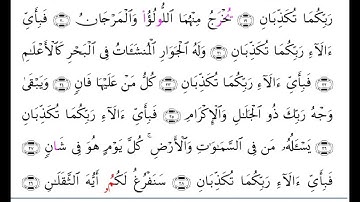 رَبِّكُمَا تُكَذِّبَانِ ۝٢١ يَخْرُجُ مِنْهُمَا ٱللُّؤْلُؤُ وَٱلْمَرْجَانُ ۝٢٢ فَبِأَيِّ
ءَالَآءِ رَبِّكُمَا تُكَذِّبَانِ ۝٢٣ وَلَهُ ٱلْجَوَارِ ٱلْمُنشَـَٔاتُ فِى ٱلْبَحْرِ كَٱلْأَعْلَـٰمِ
۝٢٤ فَبِأَيِّ ءَالَآءِ رَبِّكُمَا تُكَذِّبَانِ ۝٢٥ كُلُّ مَنْ عَلَيْهَا فَانٍ ۝٢٦ وَيَبْقَىٰ
وَجْهُ رَبِّكَ ذُو ٱلْجَلَـٰلِ وَٱلْإِكْرَامِ ۝٢٧ فَبِأَيِّ ءَالَآءِ رَبِّكُمَا تُكَذِّبَانِ
۝٢٨ يَسْـَٔلُهُۥ مَن فِى ٱلسَّمَـٰوَٰتِ وَٱلْأَرْضِ ۚ كُلَّ يَوْمٍ هُوَ فِى شَأْنٍ ۝٢٩
فَبِأَيِّ ءَالَآءِ رَبِّكُمَا تُكَذِّبَانِ ۝٣٠ سَنَفْرُغُ لَكُمْ أَيُّهَ ٱلثَّقَلَانِ ۝٣١